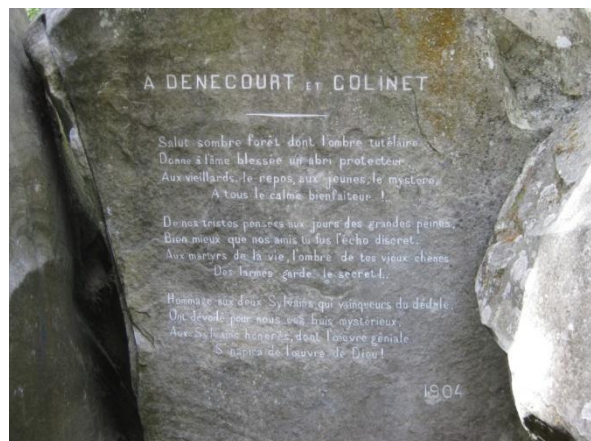 A DENECOURT ET COLINET
Salut sombre forêt dont l'ombre tutélaire
Donne à l'âme blessée un abri protecteur,
Aux vieillards, le repos, aux jeunes, le mystère,
A tous le calme bienfaiteur !
De nos tristes pensées aux jours des grandes peines,
Bien mieux que nos amis tu fus l'écho discret.
Aux martyrs de la vie, l'ombre de tes vieux chênes
Des larmes garde le secret !..
Hommage aux deux Sylvains, qui vainqueurs du dédale
Ont dévoilé pour nous ces buis mystérieux,
Aux Sylvains honorés, dont l'œuvre géniale
S'inspira de l'œuvre de Dieu !
1904